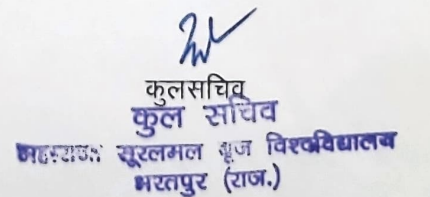 कुलसचिव
कुल सचिव
महाराजा सूरजमल बृज विश्वविद्यालय
भरतपुर (राज.)